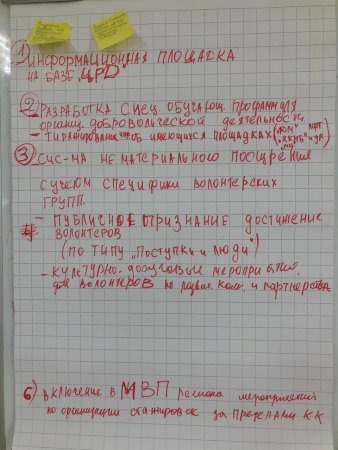 1) ИНФОРМАЦИОННАЯ ПЛОЩАДКА
НА БАЗЕ ЦРД
2) - РАЗРАБОТКА СПЕЦ. ОБУЧАЮЩ. ПРОГРАММ ДЛЯ
ОРГАНИЗ. ДОБРОВОЛЬЧЕСКОЙ ДЕЯТЕЛЬНОСТИ
- ТИРАЖИРОВАНИЕ ОБ ИМЕЮЩИХСЯ ПЛОЩАДКАХ
3) СИС-МА НЕМАТЕРИАЛЬНОГО ПООЩРЕНИЯ
С УЧЕТОМ СПЕЦИФИКИ ВОЛОНТЕРСКИХ
ГРУПП.
- ПУБЛИЧНОЕ ПРИЗНАНИЕ ДОСТИЖЕНИЕ
ВОЛОНТЕРОВ
(ПО ТИПУ „ПОСТУПКИ и ЛЮДИ")
- КУЛЬТУРНО-досуговые мероприятия
для волонтеров по развит. ком. и партнерства
6) включение в МВП региона мероприятий
по организации стажировок за пределами КК